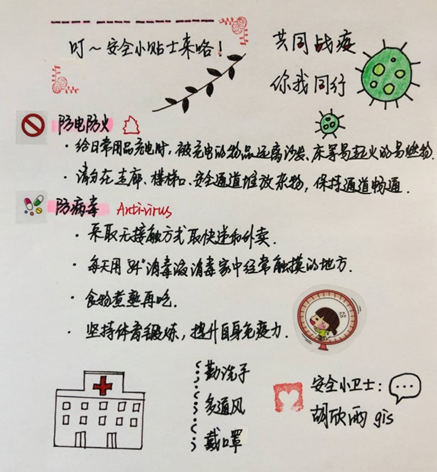 叮～安全小贴士来咯！
共同战疫
你我同行
防电防火
·给日常用品充电时，被充电的物品远离沙发、床等易起火的易燃物.
·请勿在走廊、楼梯口、安全通道堆放杂物，保持通道畅通.
防病毒 Anti-virus
·采取无接触方式取快递和外卖.
·每天用"84"消毒液消毒家中经常触摸的地方.
·食物煮熟再吃.
·坚持体育锻炼，提升自身免疫力.
勤洗手
多通风
戴口罩
安全小卫士：
胡欣雨 gis